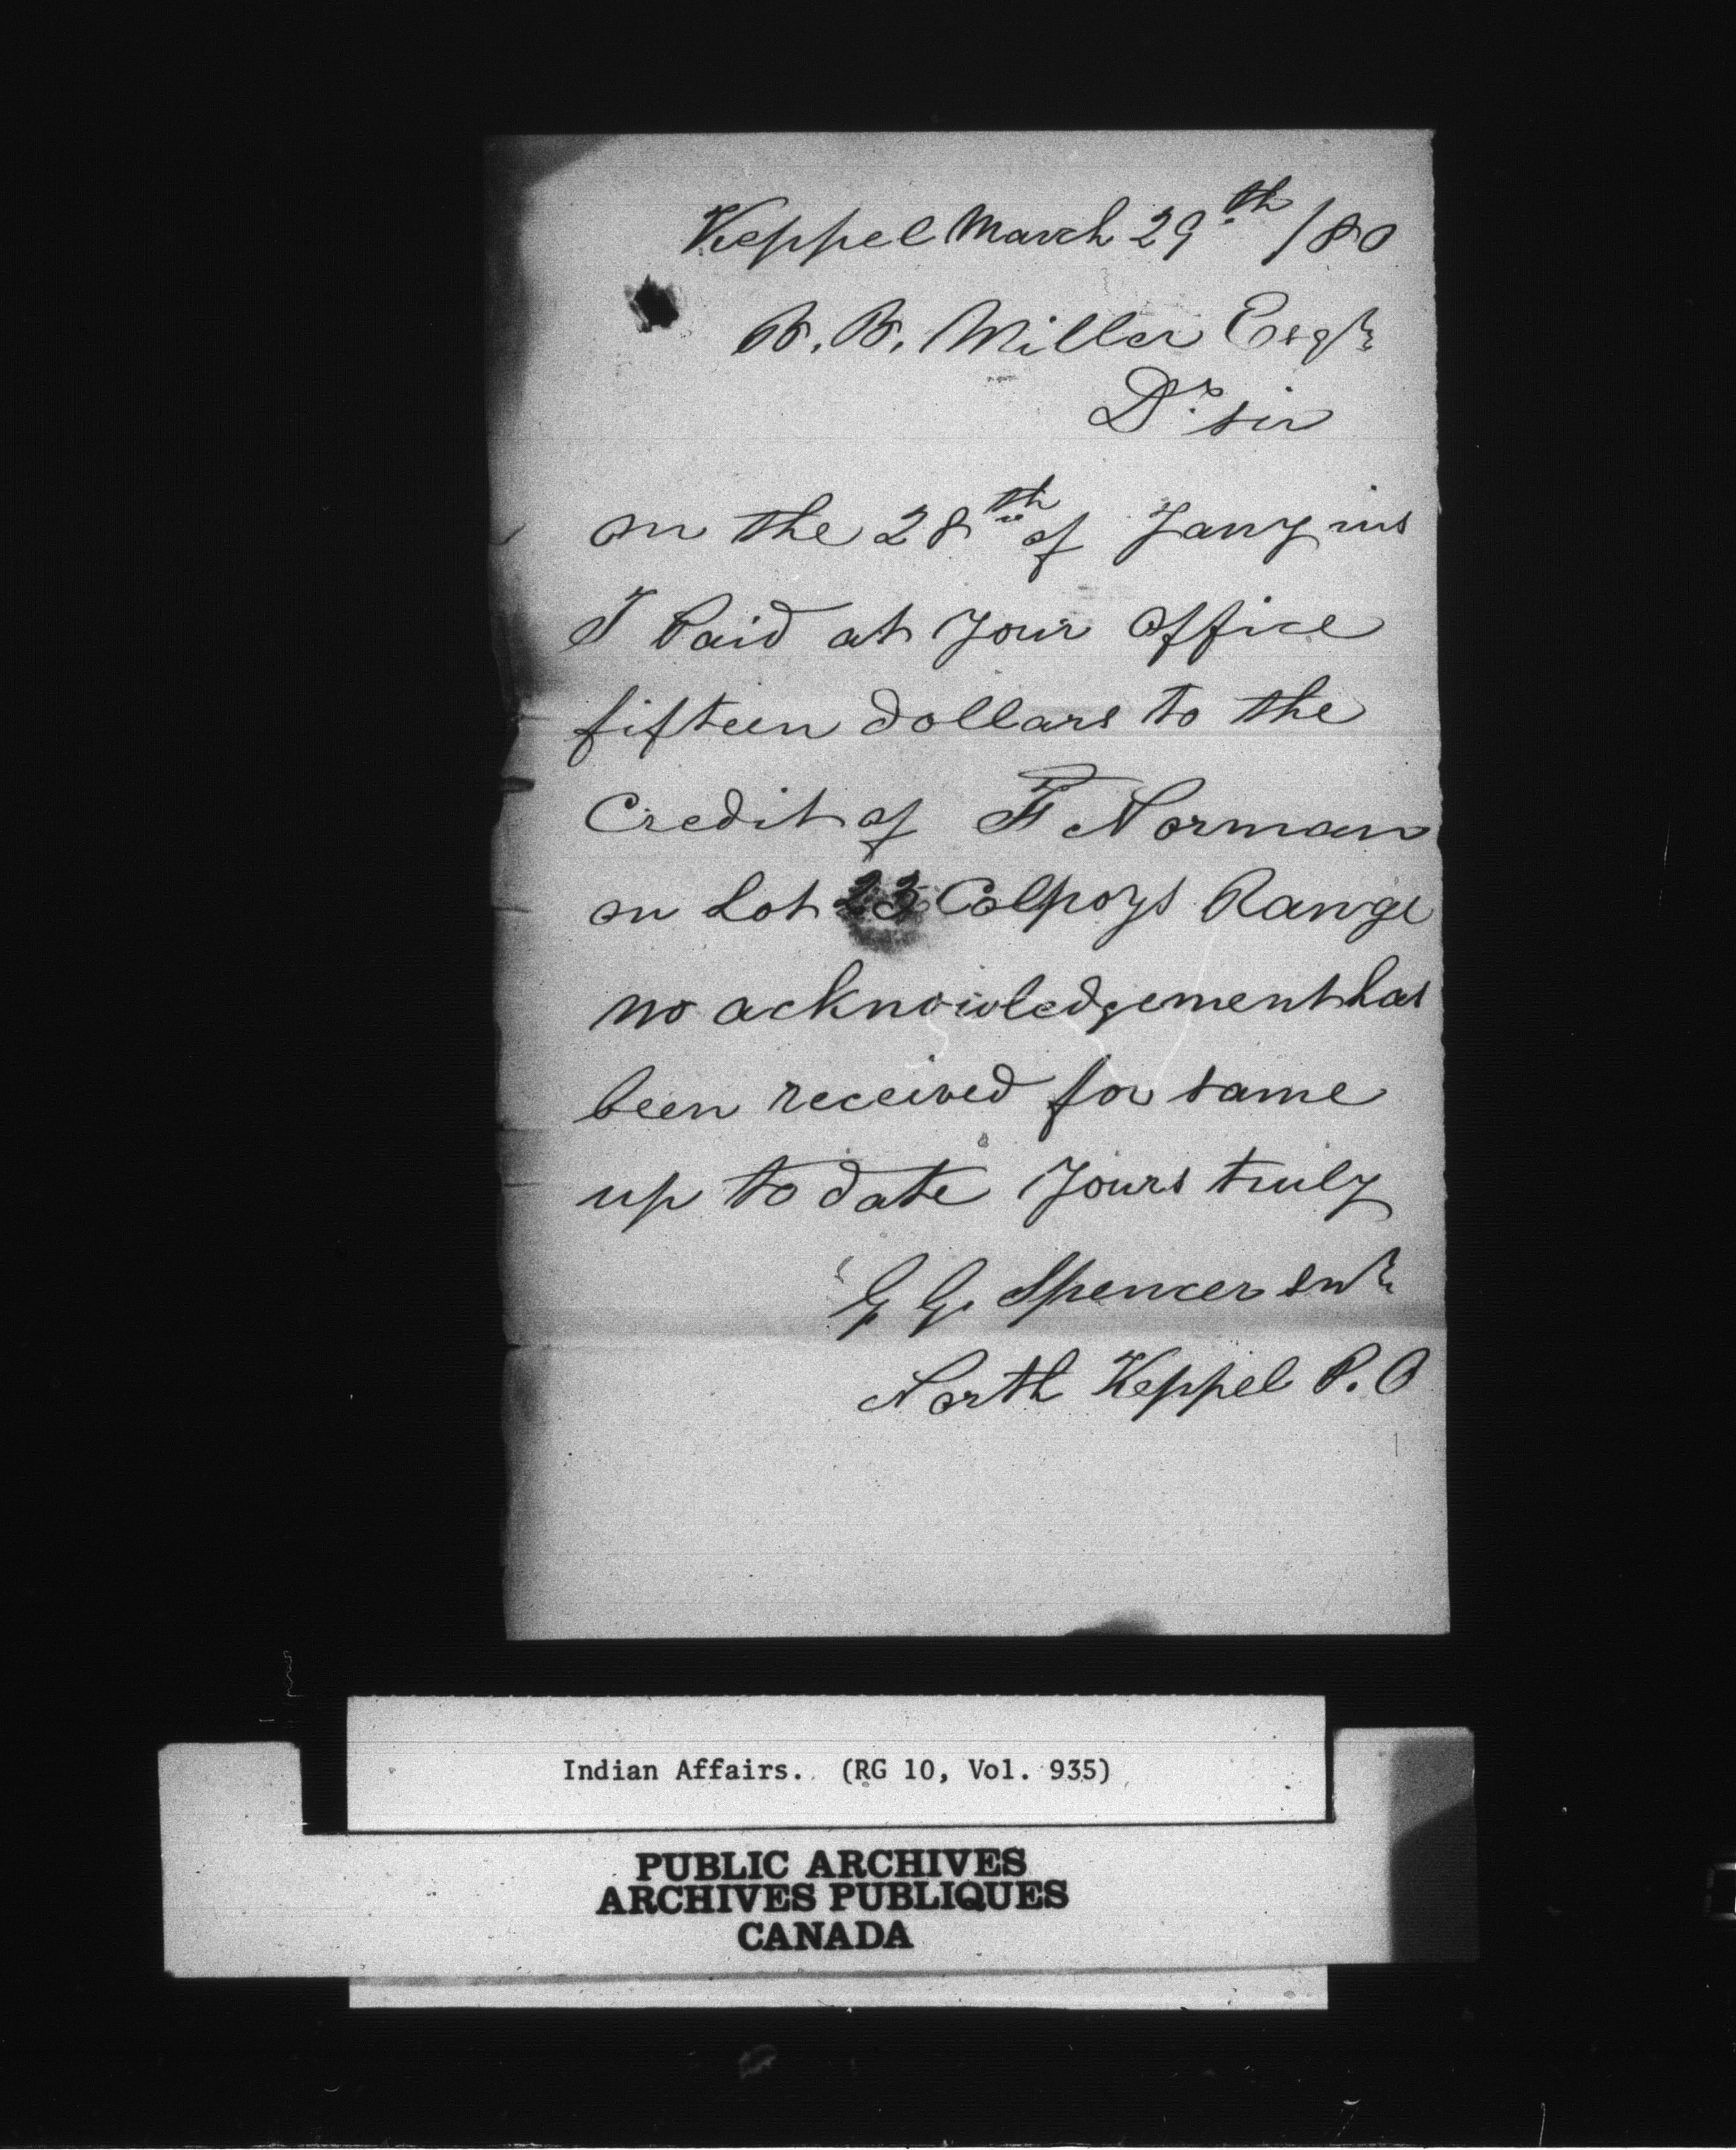 Keppel March 29th /80
B. B. Miller Esqr
Dr. sir
on the 28th of Jany ins
I Paid at Your Office
fifteen dollars to the
Credit of F Norman
on Lot 23 Colpoys Range
no acknowledgement has
been received for same
up to date Yours truly
G G. Spencer Snr
North Keppel P. O
Indian Affairs. (RG 10, Vol. 935)
PUBLIC ARCHIVES
ARCHIVES PUBLIQUES
CANADA